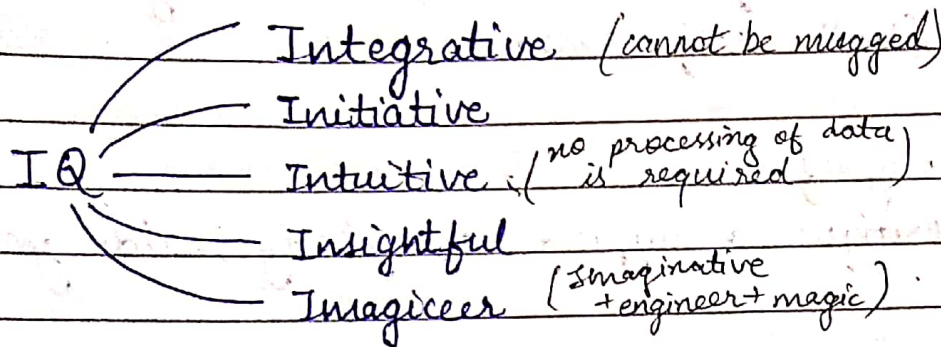 Integrative (cannot be mugged)
Initiative
IQ
Intuitive. (no processing of data is required).
Insightful
Imagiceer (Imaginative +engineer+magic).